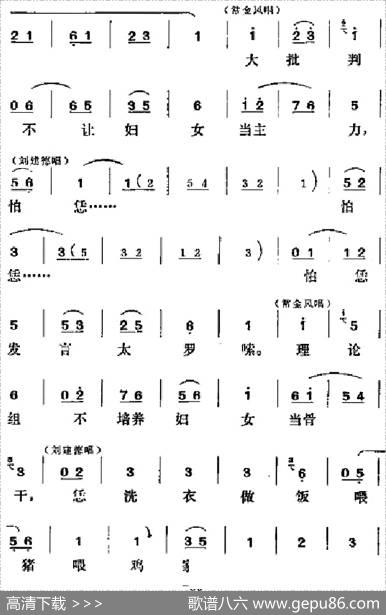 (常金凤唱)
2 1 | 6 1 | 2 3 | 1 | i | 2 3 | 5
大 批 判
0 6 | 6 5 | 3 5 | 6 | i 2 | 7 6 | 5
不 让 妇 女 当 主 力,
(刘建德唱)
5 6 | 1 | 1 ( 2 | 5 4 | 3 2 | 1 ) | 5 2
怕 恁…… 怕
3 | 3 ( 5 | 3 2 | 1 2 | 3 ) | 0 1 | 1 2
恁…… 怕 恁
(常金凤唱)
5 | 5 3 | 2 5 | 6 | 1 | i | 5
发 言 太 罗 嗦。 理 论
6 | 0 2 | 7 6 | 5 6 | i | 6 i | 5 4
组 不 培养 妇 女 当骨
(刘建德唱)
3 | 0 2 | 3 | 3 | 3 | 6 | 0 5
干, 恁 洗 衣 做 饭 喂
5 6 | 1 | 1 | 3 5 | 1 | 2 | 3
猪 喂 鸡
高清下载 >>>
歌谱八六 www.gepu86.com